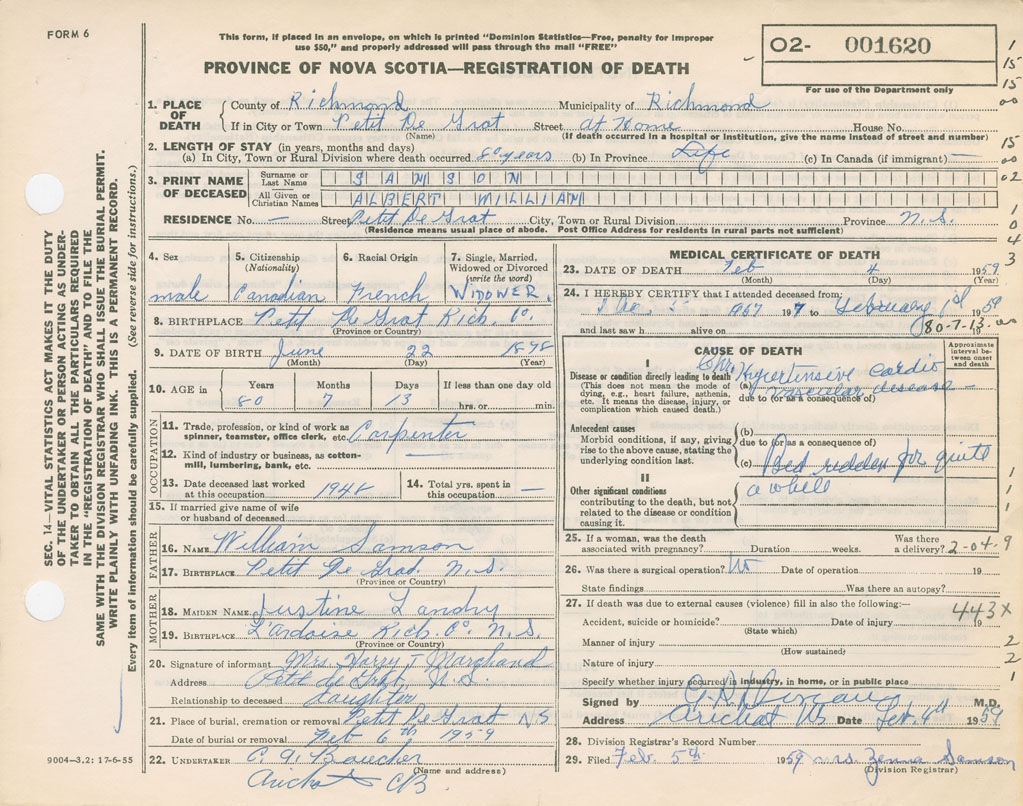 FORM 6
This form, if placed in an envelope, on which is printed "Dominion Statistics—Free, penalty for improper
use $50," and properly addressed will pass through the mail "FREE"
O2- 001620
For use of the Department only
PROVINCE OF NOVA SCOTIA—REGISTRATION OF DEATH
1. PLACE OF DEATH County of Richmond Municipality of Richmond
If in City or Town Petit De Grat Street at Home House No.
(Name) (If death occurred in a hospital or institution, give the name instead of street and number)
2. LENGTH OF STAY (in years, months and days)
(a) In City, Town or Rural Division where death occurred 80 years (b) In Province Life (c) In Canada (if immigrant) —
3. PRINT NAME OF DECEASED
Surname or Last Name SAMSON
All Given or Christian Names ALBERT WILLIAM
RESIDENCE No. — Street Petit De Grat City, Town or Rural Division Province N.S.
(Residence means usual place of abode. Post Office Address for residents in rural parts not sufficient)
4. Sex 5. Citizenship (Nationality) 6. Racial Origin 7. Single, Married, Widowed or Divorced (write the word)
male Canadian French WIDOWER.
8. BIRTHPLACE Petit De Grat Rich. Co.
(Province or Country)
9. DATE OF BIRTH June 22 1878
(Month) (Day) (Year)
10. AGE in Years Months Days If less than one day old
80 7 13 hrs. or min.
OCCUPATION
11. Trade, profession, or kind of work as spinner, teamster, office clerk, etc. Carpenter
12. Kind of industry or business, as cotton-mill, lumbering, bank, etc.
13. Date deceased last worked at this occupation 1948 14. Total yrs. spent in this occupation —
15. If married give name of wife or husband of deceased
FATHER
16. NAME William Samson
17. BIRTHPLACE Petit De Grat N.S.
(Province or Country)
MOTHER
18. MAIDEN NAME Justine Landry
19. BIRTHPLACE L'Ardoise Rich. Co. N.S.
(Province or Country)
20. Signature of informant Mrs. Harry T Marchand
Address Petit de Grat, N.S.
Relationship to deceased daughter
21. Place of burial, cremation or removal Petit De Grat N.S
Date of burial or removal Feb 6th 1959
22. UNDERTAKER Boucher
(Name and address)
CB
MEDICAL CERTIFICATE OF DEATH
23. DATE OF DEATH Feb 4 1959
(Month) (Day) (Year)
24. I HEREBY CERTIFY that I attended deceased from:
1957 to February 1st 1959
80-7-13
and last saw h alive on 19
CAUSE OF DEATH
Approximate interval between onset and death
I
Disease or condition directly leading to death
(This does not mean the mode of dying, e.g., heart failure, asthenia, etc. It means the disease, injury, or complication which caused death.)
(a) Chr. Hypertensive cardio
vascular disease —
due to (or as a consequence of)
Antecedent causes
Morbid conditions, if any, giving rise to the above cause, stating the underlying condition last.
(b)
due to (or as a consequence of)
(c) Bed ridden for quite
a while
II
Other significant conditions
contributing to the death, but not related to the disease or condition causing it.
25. If a woman, was the death associated with pregnancy? Duration weeks. Was there a delivery? 2-04.9
26. Was there a surgical operation? No Date of operation 19
State findings Was there an autopsy?
27. If death was due to external causes (violence) fill in also the following:—
443X
Accident, suicide or homicide? Date of injury 19
(State which)
Manner of injury
(How sustained)
Nature of injury
Specify whether injury occurred in industry, in home, or in public place
Signed by M.D.
Address Arichat NS Date Feb. 4th 1959
28. Division Registrar's Record Number
29. Filed Feb. 5th 1959 Mrs. Samson
(Division Registrar)
SEC. 14—VITAL STATISTICS ACT MAKES IT THE DUTY
OF THE UNDERTAKER OR PERSON ACTING AS UNDER-
TAKER TO OBTAIN ALL THE PARTICULARS REQUIRED
IN THE "REGISTRATION OF DEATH" AND TO FILE THE
SAME WITH THE DIVISION REGISTRAR WHO SHALL ISSUE THE BURIAL PERMIT.
WRITE PLAINLY WITH UNFADING INK. THIS IS A PERMANENT RECORD.
Every item of information should be carefully supplied. (See reverse side for instructions.)
9004—3,2: 17-6-55
1
15
15
00
15
15
00
02
1
0
4
3
1
1
1
2
2
1